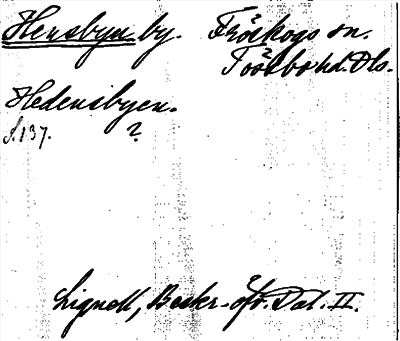 Hensbyn by. Fröskogs sn.
Tössbo hd. Dls.
Hedensbyen.
s. 137. ?
Lignell, Beskr. öfv. Dal. II.